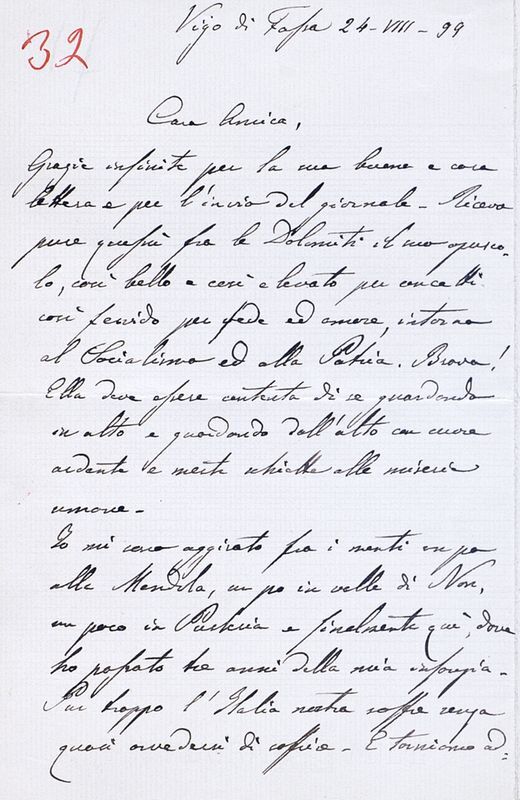 32
Vigo di Fassa 24-VIII-99
Cara Amica,
Grazie infinite per la sua buona e cara
lettera e per l'invio del giornale - Ricevo
pure quassù fra le Dolomiti il suo opusco-
lo, così bello e così elevato per concetti
così fervido per fede ed amore, intorno
al Socialismo ed alla Patria. Brava!
Ella deve essere contenta di se guardando
in alto e guardando dall'alto con cuore
ardente e mente schietta alle miserie
umane -
Io mi sono aggirato fra i monti un po
alla Mendola, un po in valle di Non,
un poco in Pusteria e finalmente quì, dove
ho passato tre anni della mia infanzia -
Pur troppo l'Italia nostra soffre senza
quasi avvedersi di soffrire - E torniamo ad-